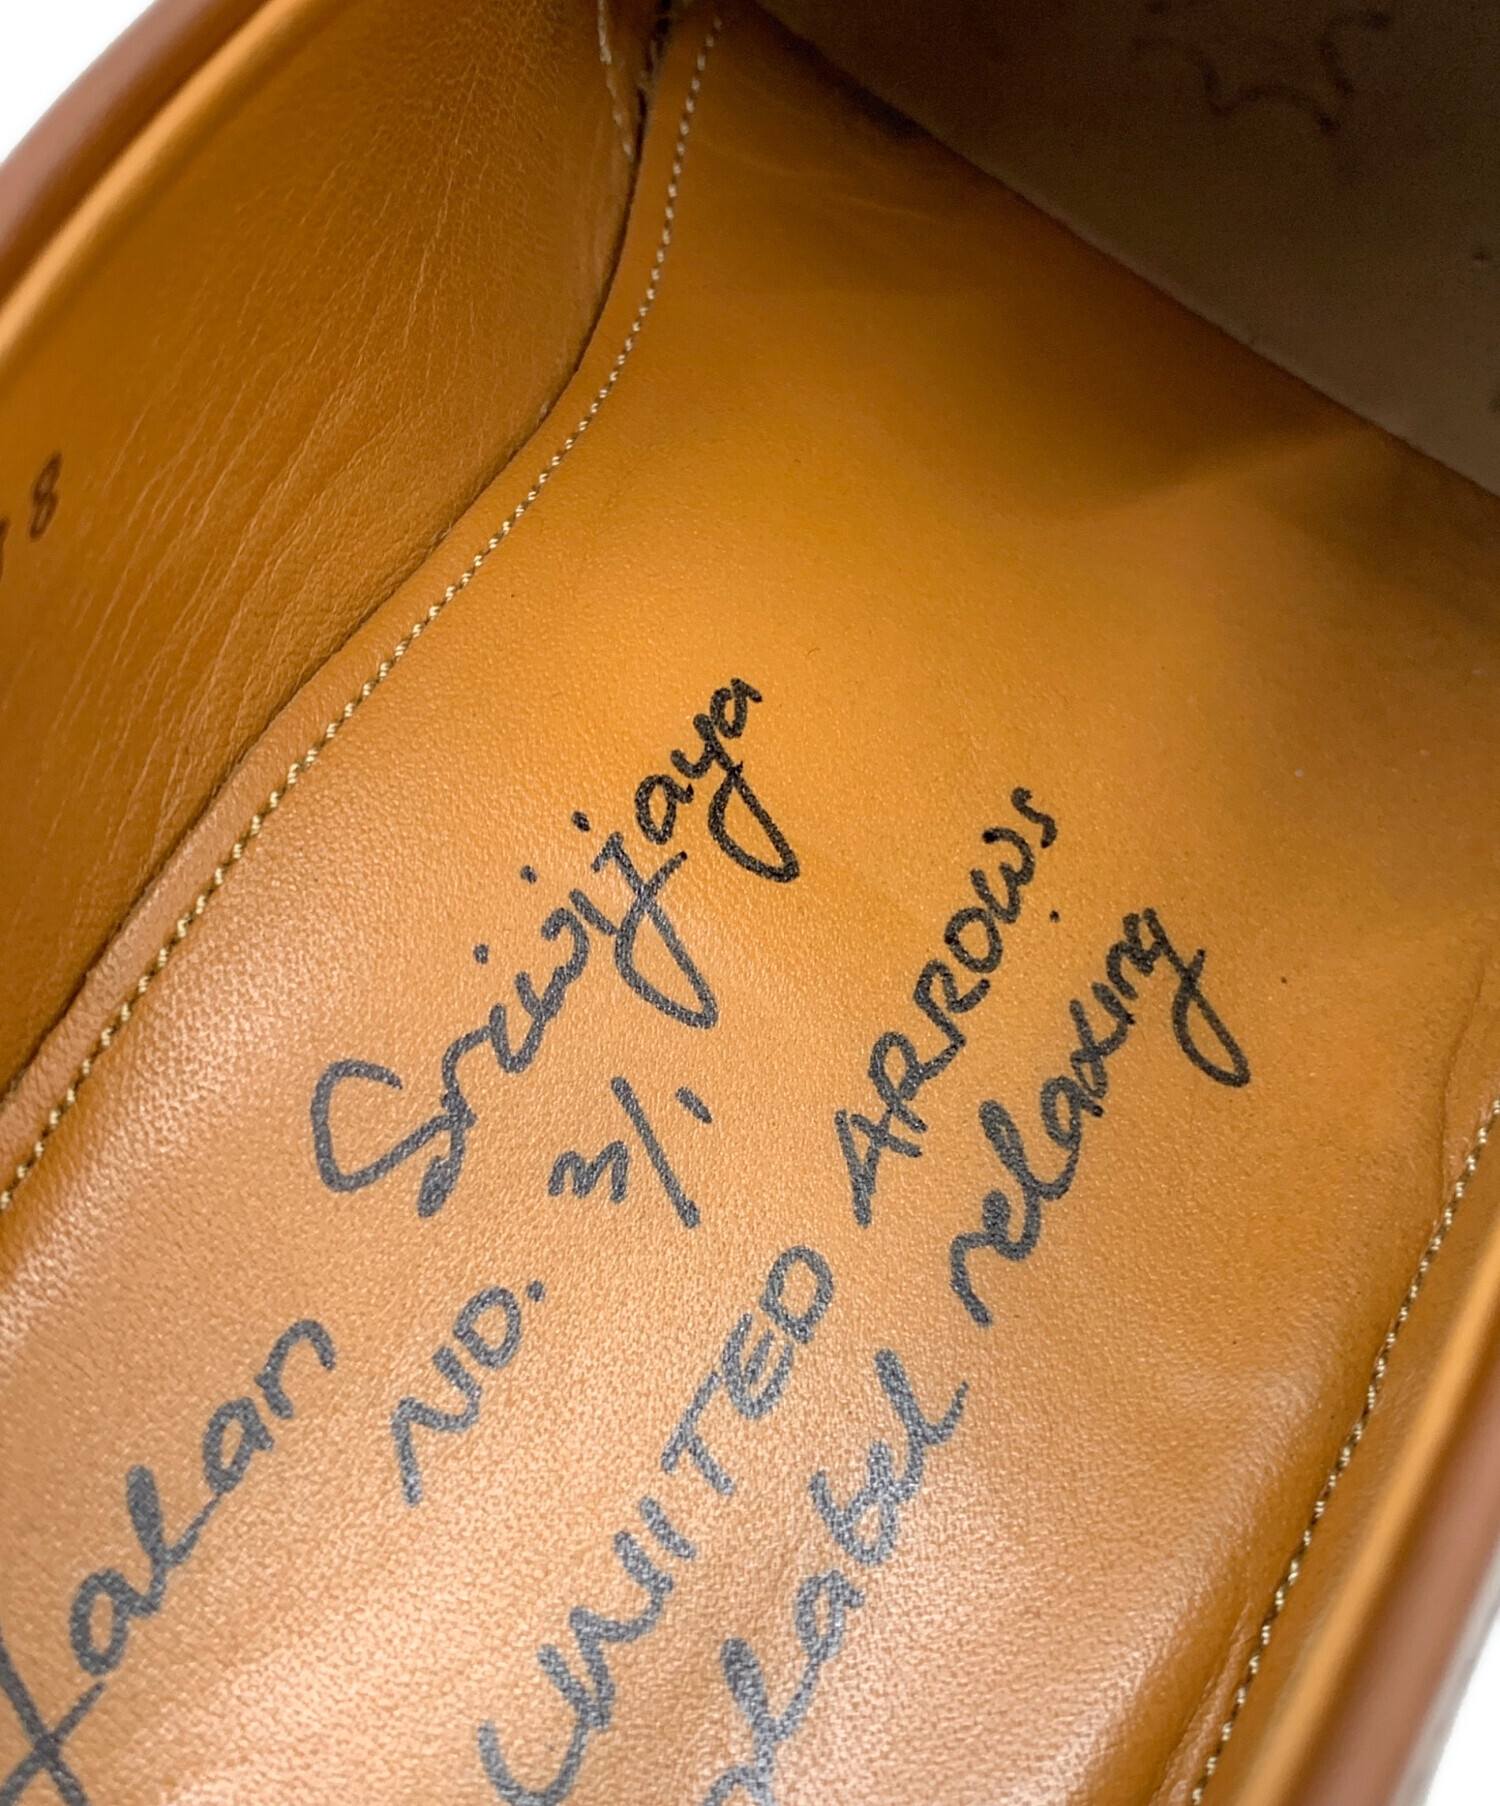 Jalan Sriwijaya
NO. m/1
UNITED ARROWS
green label relaxing
8